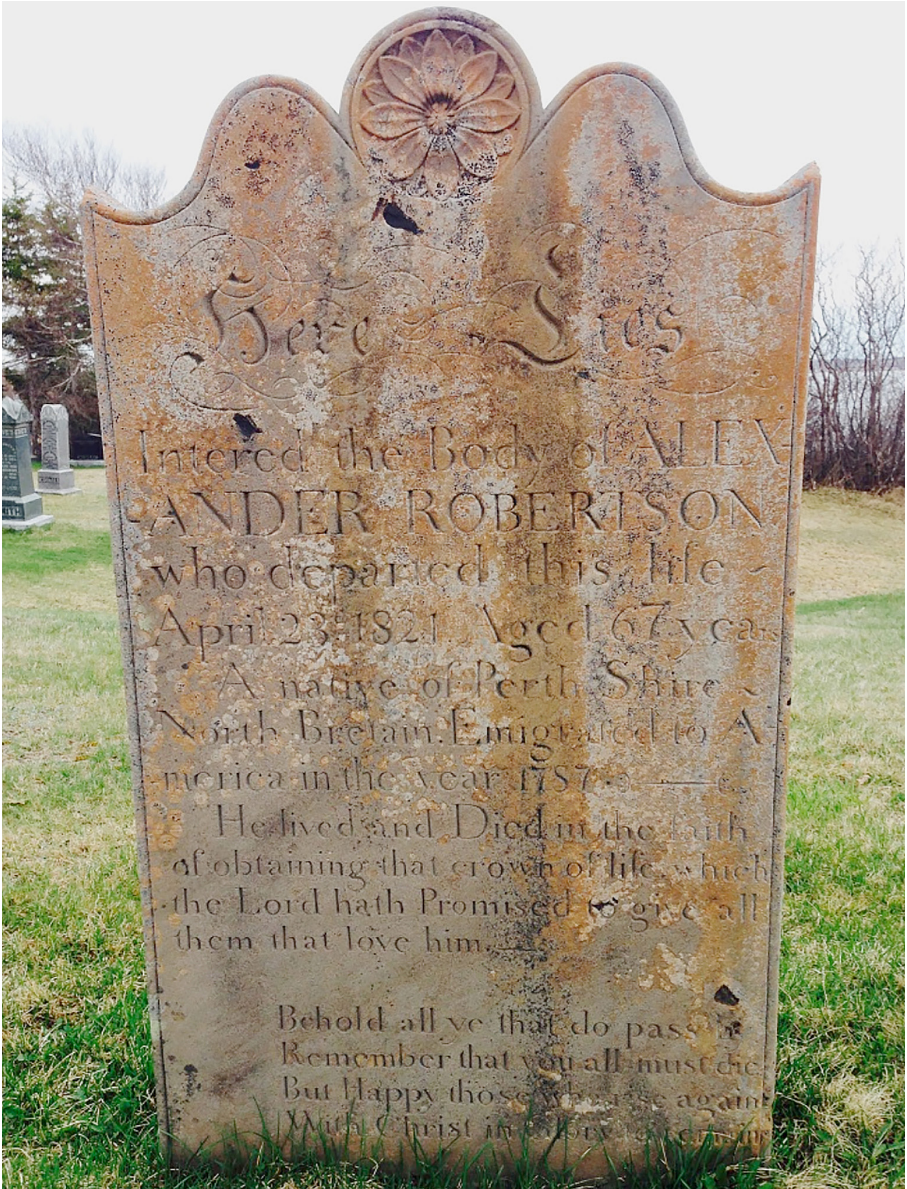 Here Lies
Intered the Body of ALEX-
-ANDER ROBERTSON
who departed this life ~
April 23 1821 Aged 67 years
A native of Perth Shire ~
North Bretain. Emigrated to A
merica in the year 1787
He lived and Died in the faith
of obtaining that crown of life, which
the Lord hath Promised to give all
them that love him.
Behold all ye that do pass
Remember that you all must die
But Happy those who rise again
With Christ in
UTH